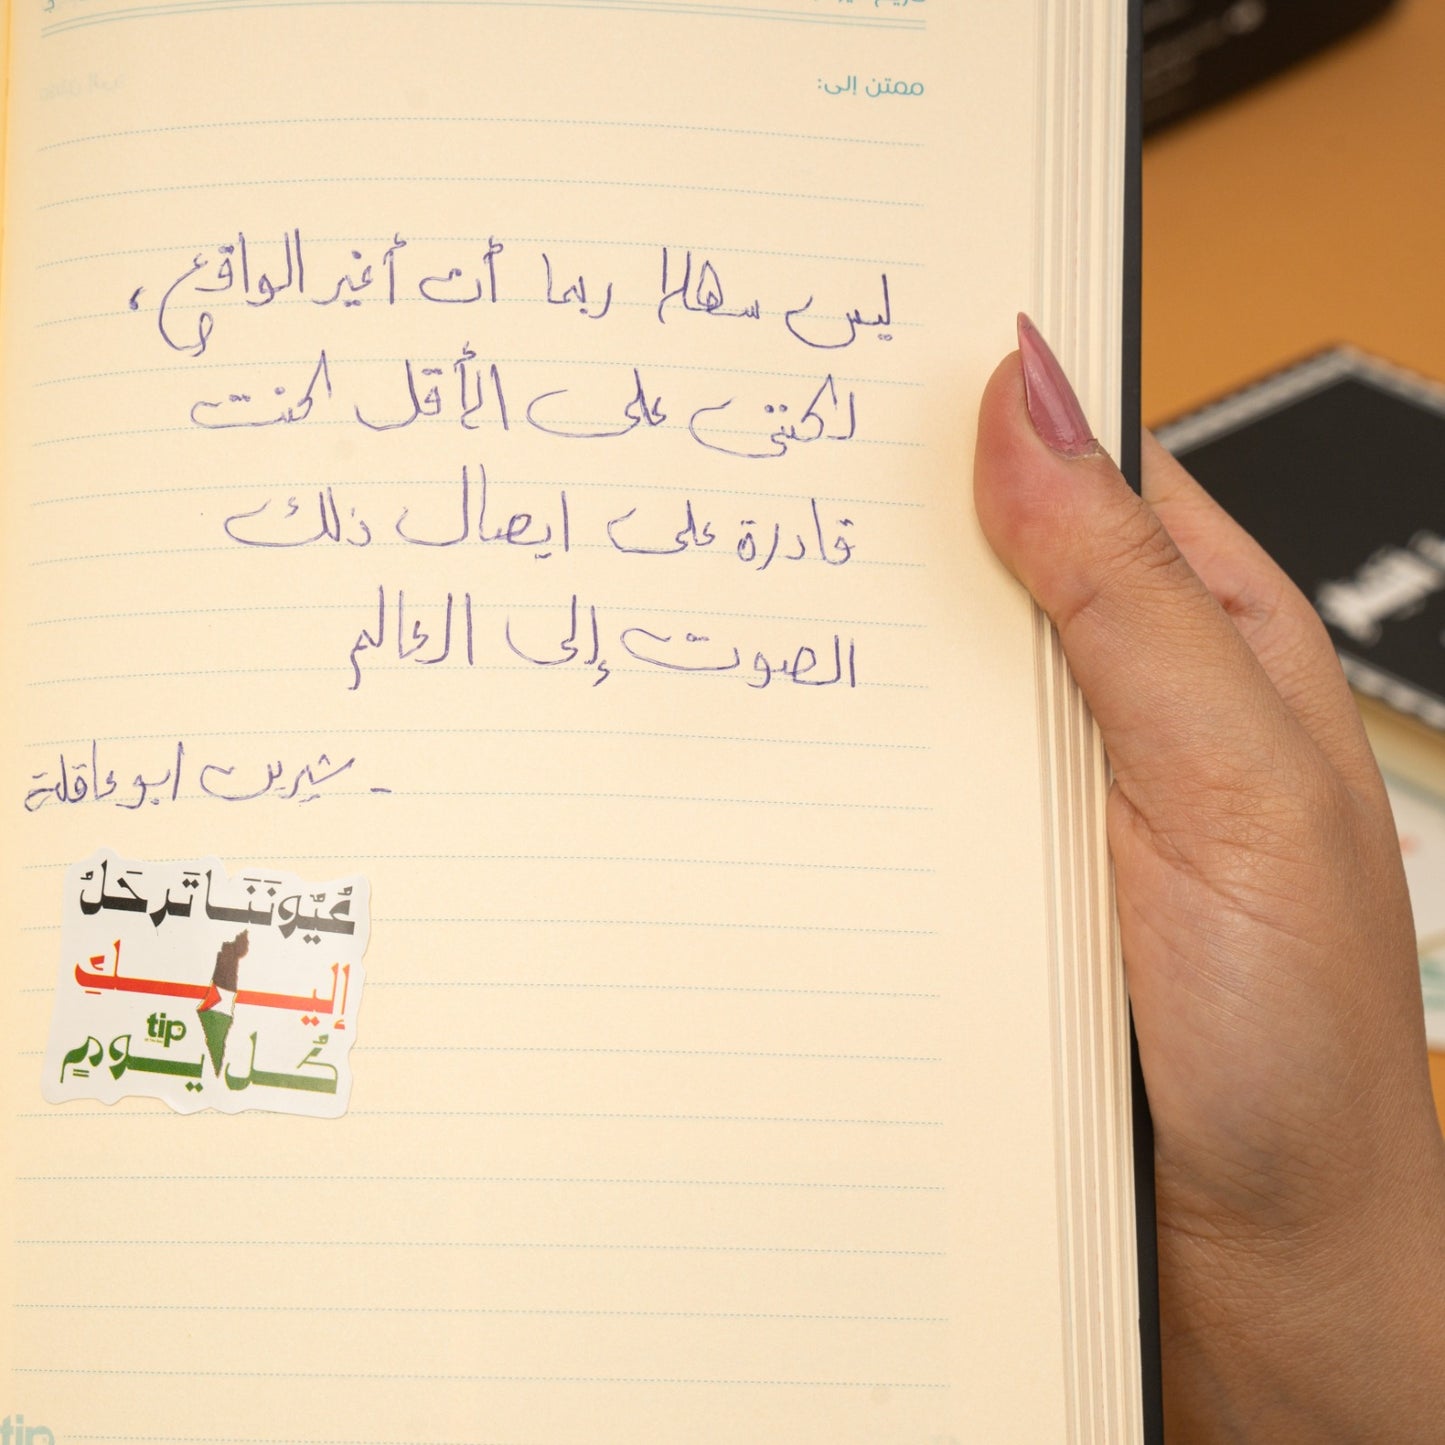 ممتن إلى:
ليس سهلا ربما أن أغير الواقع،
لكنني على الأقل كنت
قادرة على ايصال ذلك
الصوت إلى العالم
- شيرين ابو عاقلة
عُيُونَنَا تَرحَلُ
إليـكِ
tip
كُل يَومٍ
tip